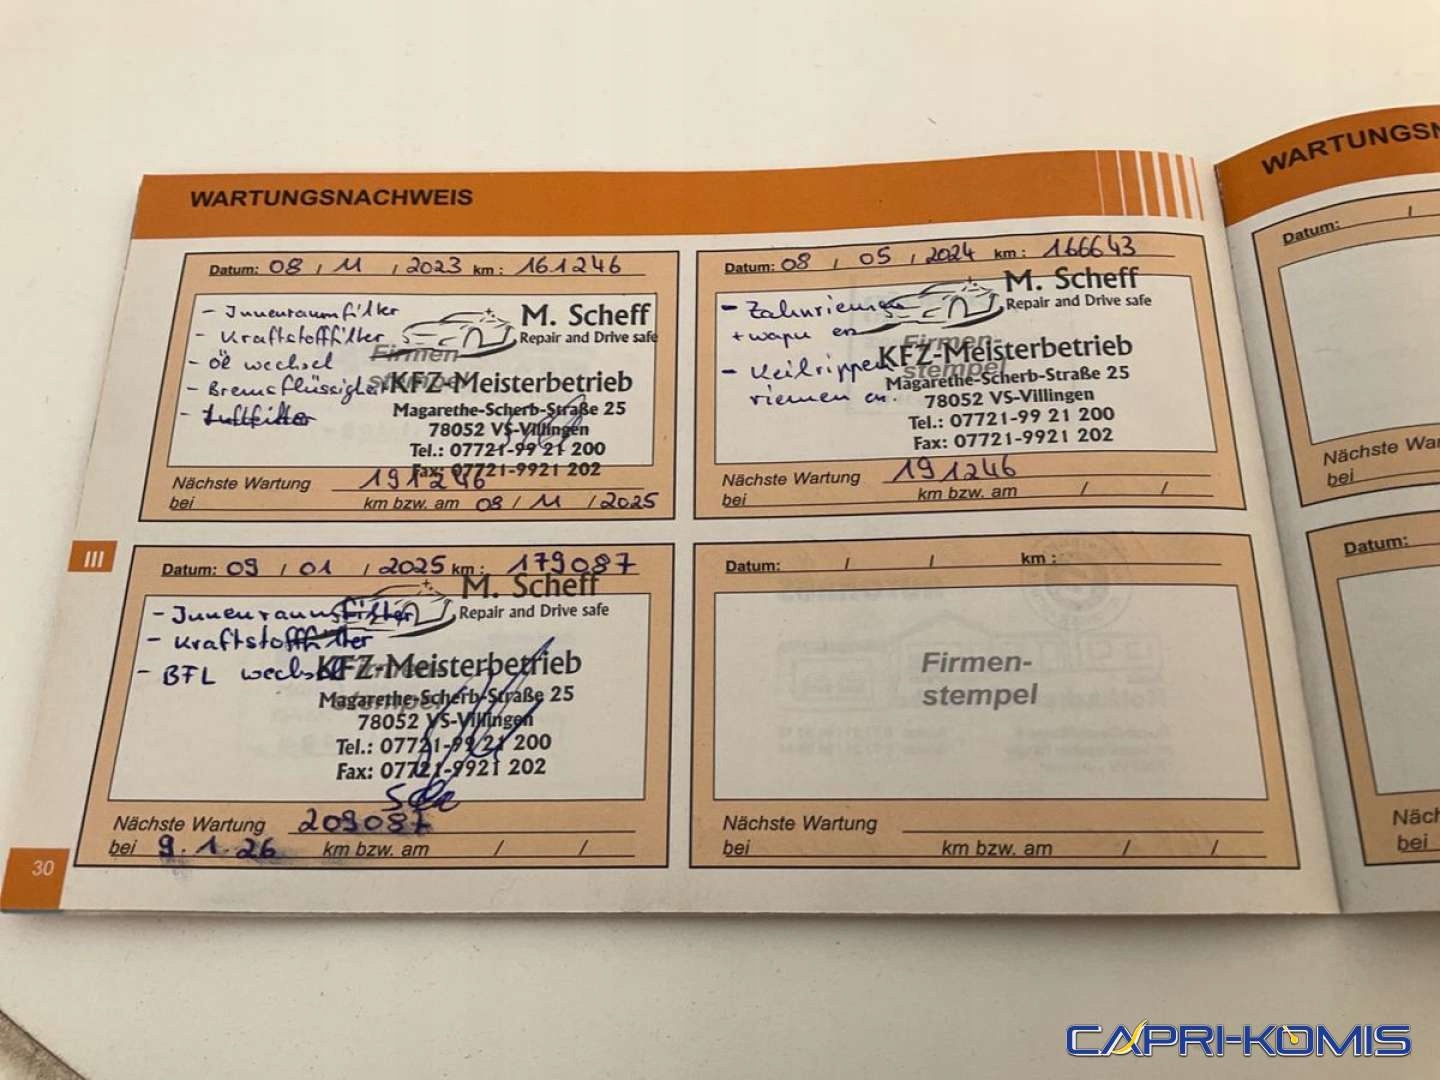 WARTUNGSNACHWEIS
Datum: 08 / 11 / 2023 km: 161246
- Innenraumfilter
- Kraftstofffilter
- Öl wechsel
- Bremsflüssigkeit
- Luftfilter
Firmen-
stempel
M. Scheff
Repair and Drive safe
KFZ-Meisterbetrieb
Magarethe-Scherb-Straße 25
78052 VS-Villingen
Tel.: 07721-99 21 200
Fax: 07721-9921 202
Nächste Wartung 191246
bei km bzw. am 08 / 11 / 2025
Datum: 08 / 05 / 2024 km: 166643
- Zahnriemen
+ wapu er.
- Keilrippen
riemen er.
Firmen-
stempel
M. Scheff
Repair and Drive safe
KFZ-Meisterbetrieb
Magarethe-Scherb-Straße 25
78052 VS-Villingen
Tel.: 07721-99 21 200
Fax: 07721-9921 202
Nächste Wartung 191246
bei km bzw. am / /
III
Datum: 09 / 01 / 2025 km: 179087
- Innenraumfilter
- Kraftstofffilter
- BFL wechsel
stempel
M. Scheff
Repair and Drive safe
KFZ-Meisterbetrieb
Magarethe-Scherb-Straße 25
78052 VS-Villingen
Tel.: 07721-99 21 200
Fax: 07721-9921 202
Nächste Wartung 209087
bei 9.1.26 km bzw. am / /
Datum: / / km:
Firmen-
stempel
Nächste Wartung
bei km bzw. am / /
30
WARTUNGSN
Datum: /
Nächste War
bei
Datum:
Näch
bei
CAPRI-KOMIS